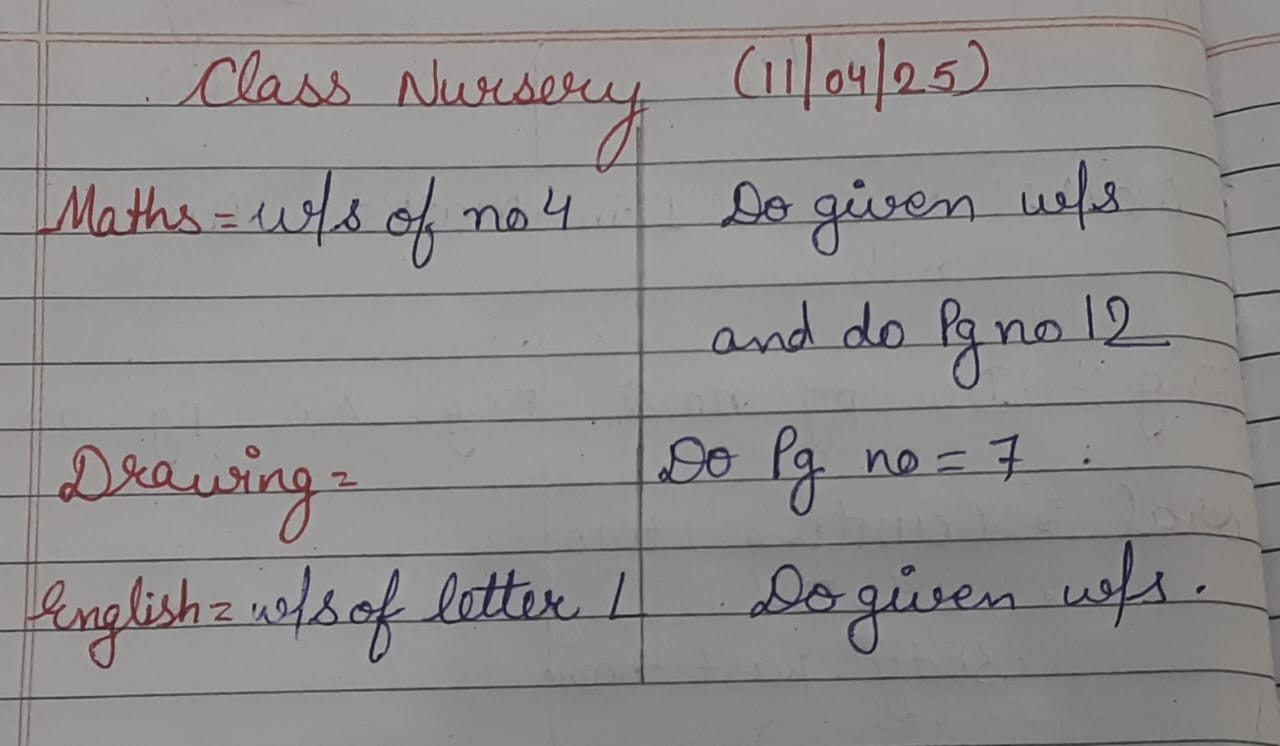 Class Nursery (11/04/25)
Maths = w/s of no 4 Do given w/s
and do Pg no 12
Drawing = Do Pg no = 7 .
English = w/s of letter L Do given w/s.